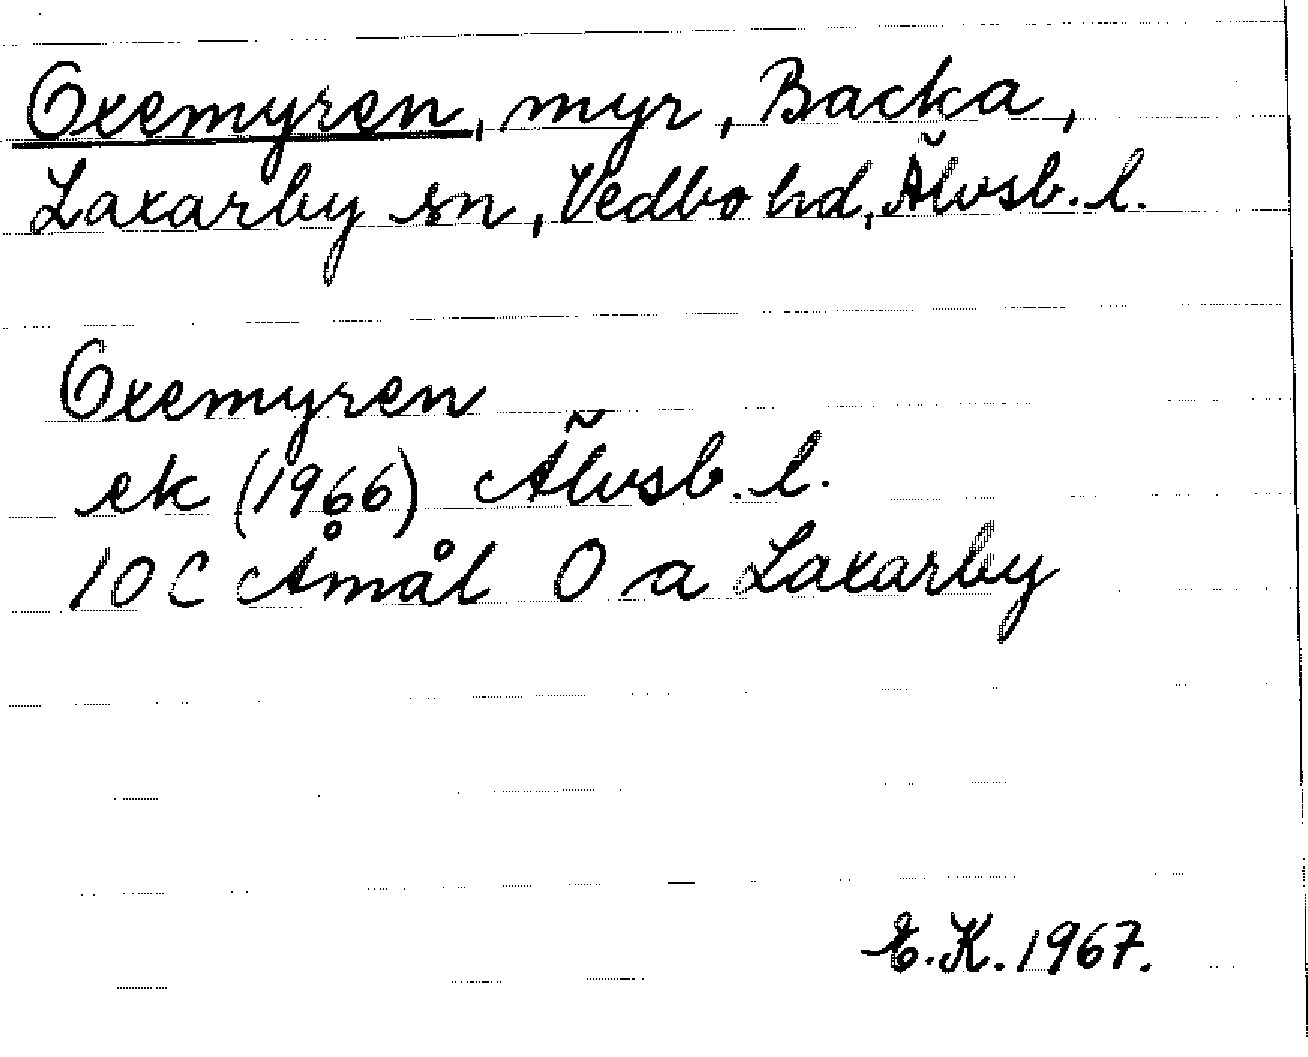 Oxemyren, myr, Backa,
Laxarby sn, Vedbo hd, Älvsb. l.
Oxemyren
ek (1966) Älvsb. l.
10 C Åmål 0 a Laxarby
E.K. 1967.